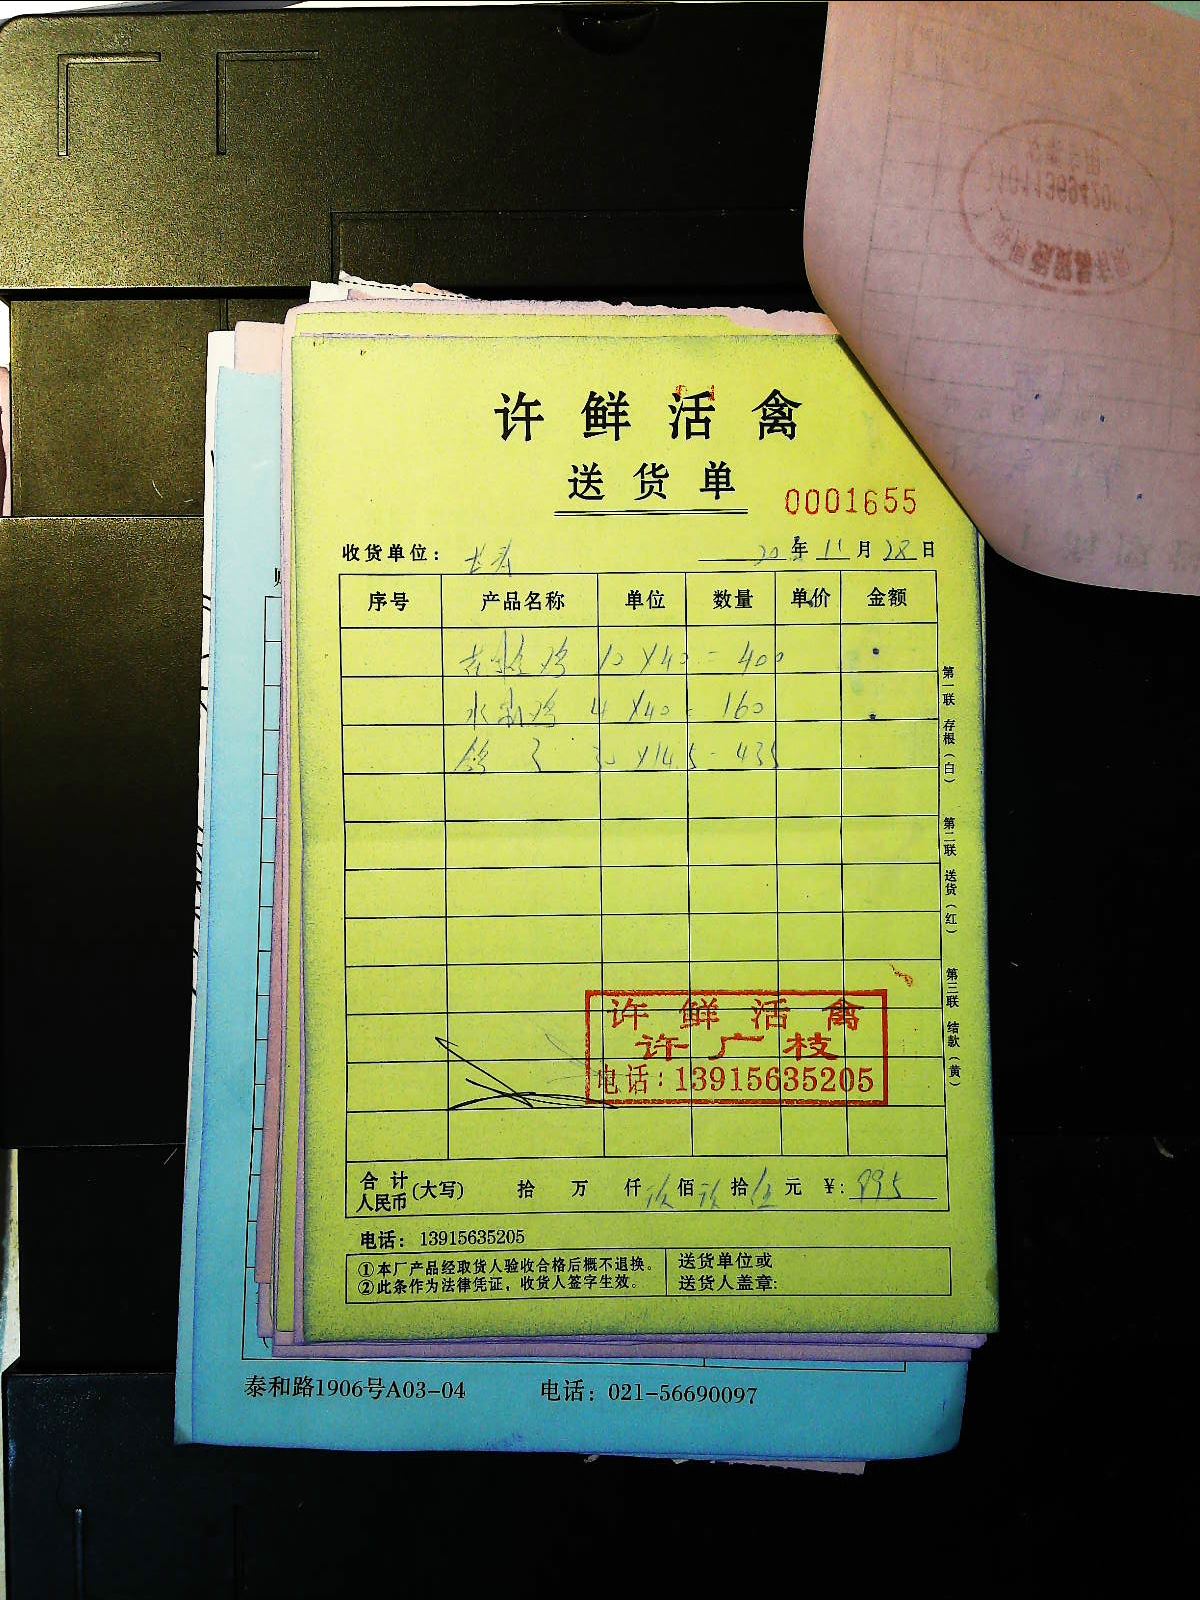 许鲜活禽
送货单
0001655
收货单位：
20年11月28日
序号 产品名称 单位 数量 单价 金额
鸡 10 X40= 400
水 鸡 4 X40= 160
鸽子 30 X14.5= 435
第一联 存根（白） 第二联 送货（红） 第三联 结款（黄）
许鲜活禽
许广枝
电话：13915635205
合计人民币(大写) 拾 万 仟 玖佰 玖拾 伍元 ¥: 995
电话： 13915635205
①本厂产品经取货人验收合格后概不退换。
②此条作为法律凭证，收货人签字生效。
送货单位或
送货人盖章:
泰和路1906号A03-04 电话：021-56690097